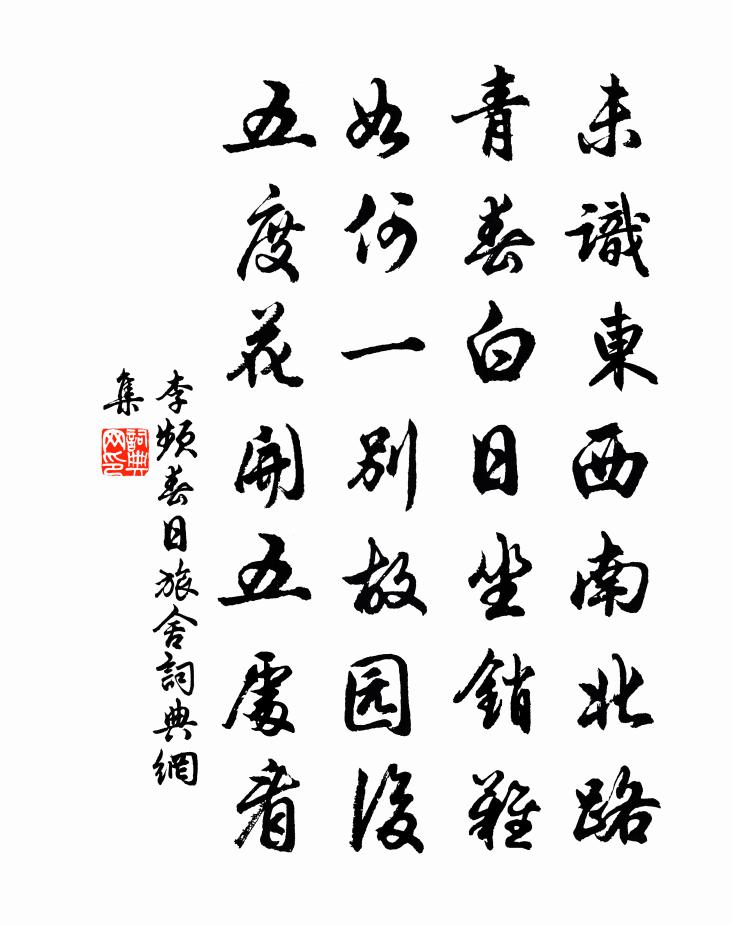 未識東西南北路
青春白日坐銷難
如何一別故园後
五度花開五處看
李頻春日旅舍詞典網
集
詞典网印